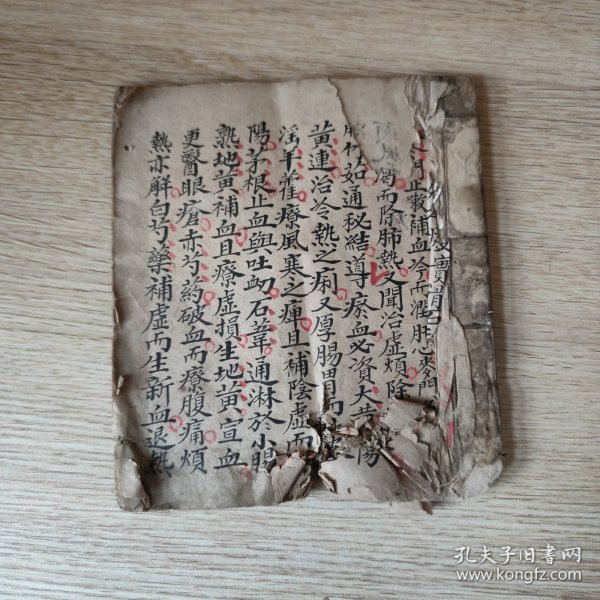 門止嗽補血冷而潤肝心麥門
而除肺熱又聞治虛煩除
通秘結導瘀血必資大黄
黄連治冷熱之痢又厚腸胃而
淫羊藿療風寒之痺且補陰虛而
陽茅根止血與吐衂石葦通淋於小腸
熟地黄補血且療虛損生地黄宣血
更醫眼瘡赤芍藥破血而療腹痛煩
熱亦解白芍藥補虛而生新血退熱
孔夫子旧書网
www.kongfz.com